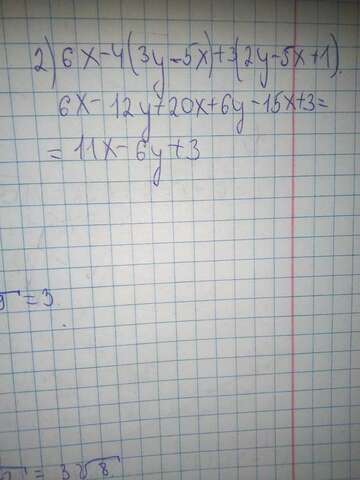 2) 6x-4(3y-5x)+3(2y-5x+1).
6x-12y+20x+6y-15x+3=
= 11x-6y+3
= 3
= 3√8